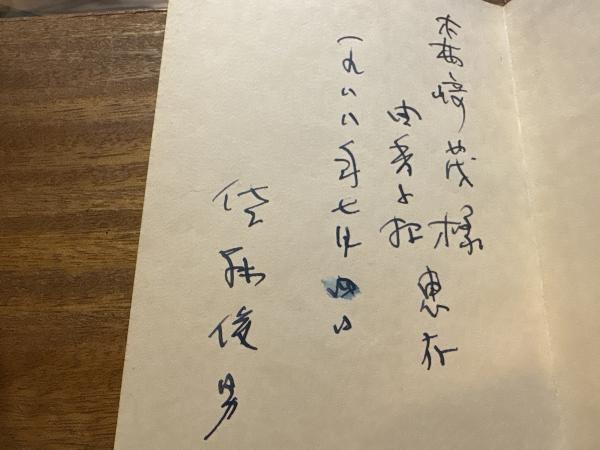 森崎茂様 恵存
由香子様
一九八八年七月四日
俊男